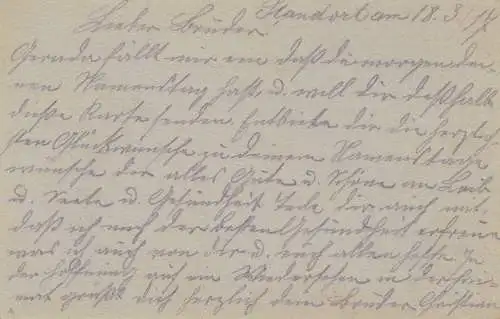 Standort am 18.3.17
Lieber Bruder.
Gerade fällt mir ein daß du morgen dei-
nen Namenstag hast u. will dir deßhalb
diese Karte senden. Entbiete dir die herzlig-
sten Glückwünsche zu deinem Namenstage
wünsche dir alles Gute u. Schöne an Leib
u. Seele u. Gesundheit Teile dir auch mit
daß ich mich der besten Gesundheit erfreue
was ich auch von dir u. euch allen hoffe. In
der Hoffnung auf ein Wiedersehen in der Hei-
mat grüßt dich herzlich dein Bruder Christian